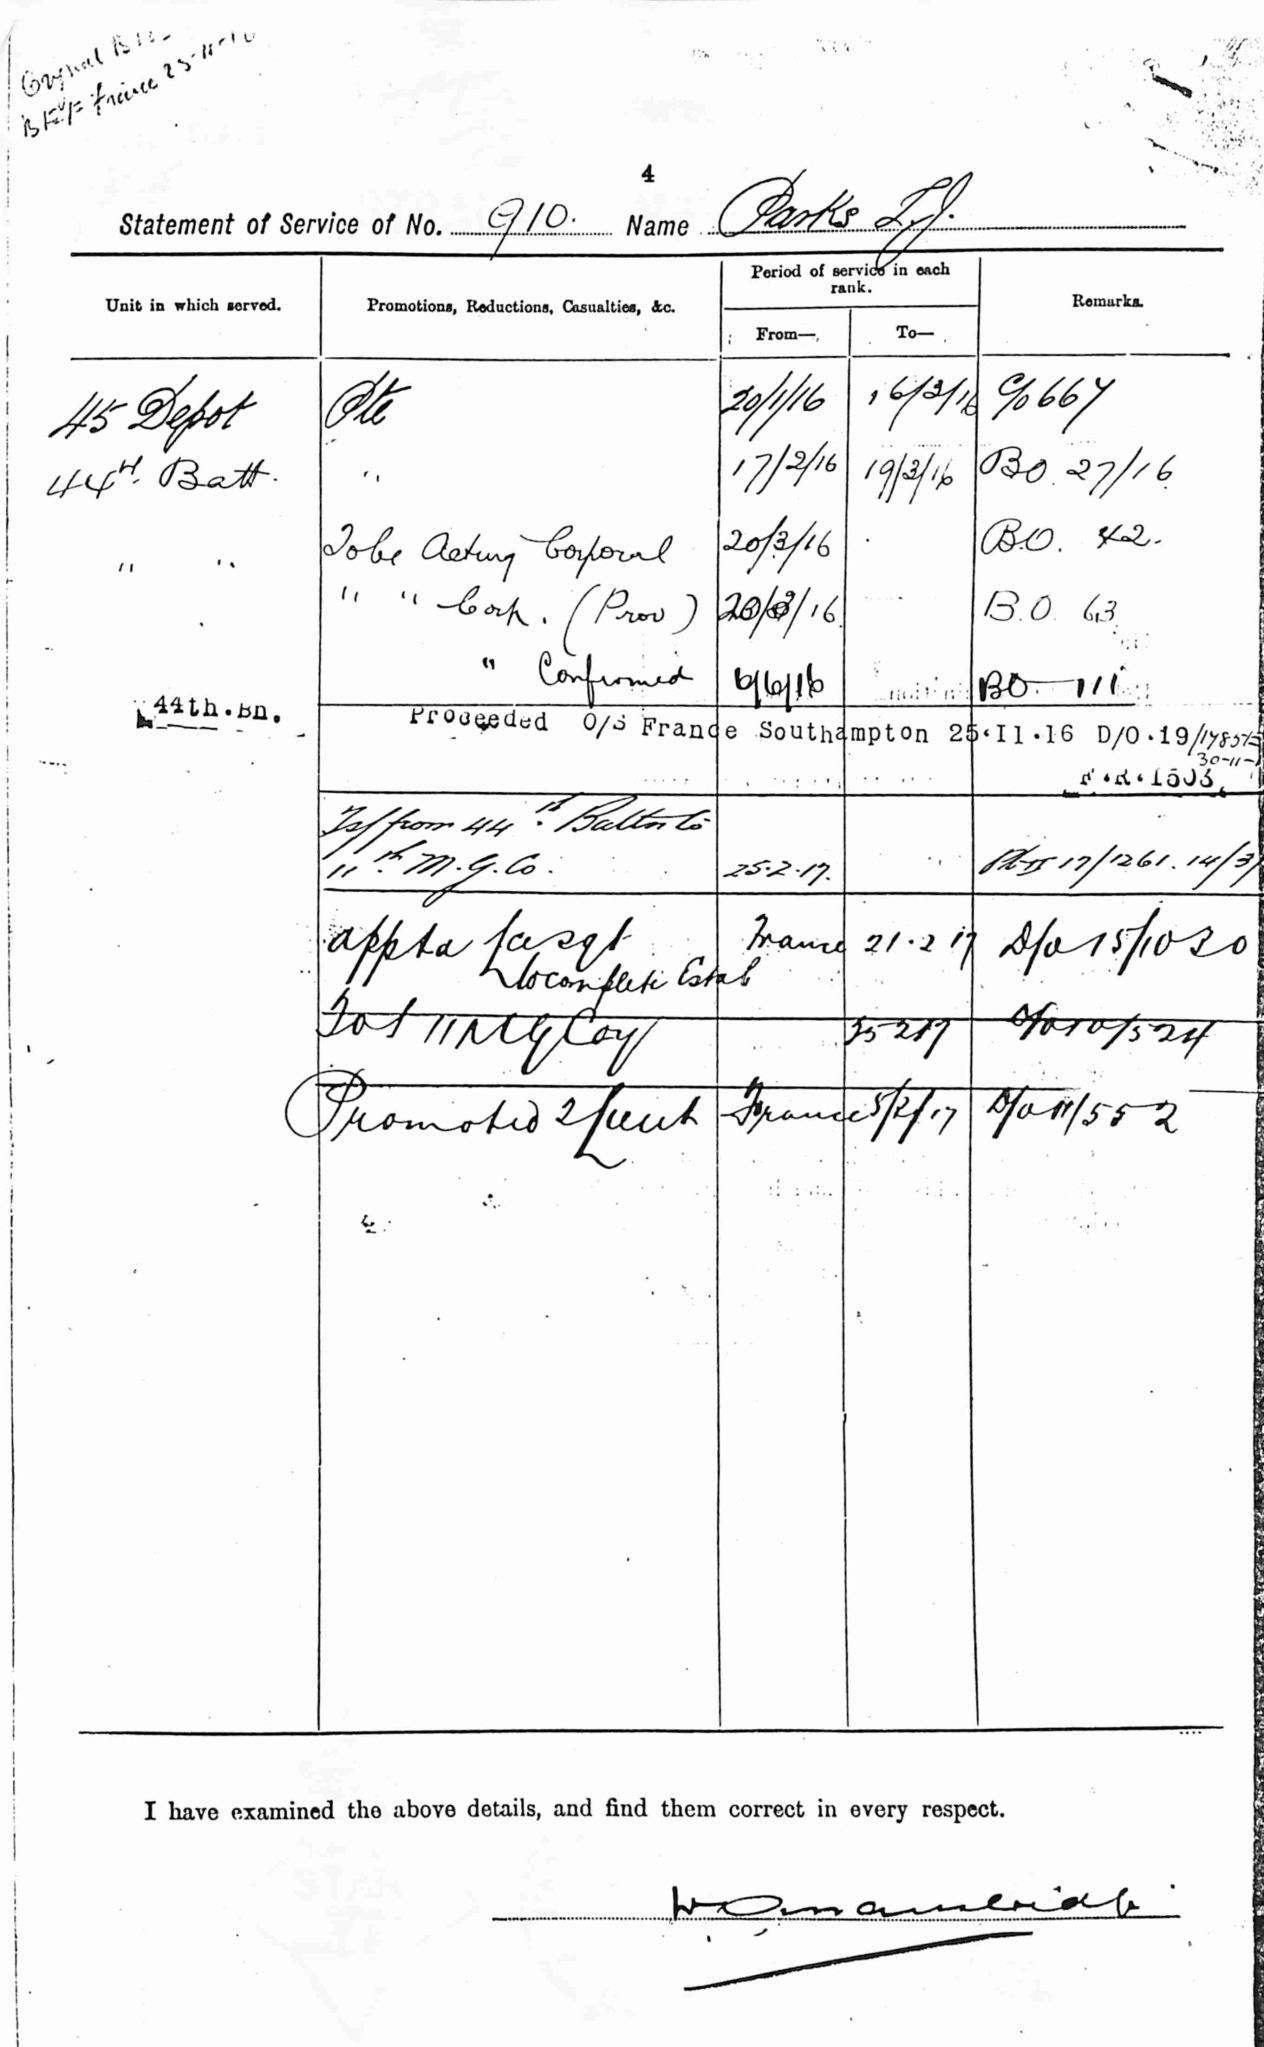 Original
BEF France 25-11-16
4
Statement of Service of No. 910. Name Parks
Unit in which served.
Promotions, Reductions, Casualties, &c.
Period of service in each rank.
From—
To—
Remarks.
45 Depot Pte 20/1/16 16/2/16 C/o 667
44th Batt. " 17/2/16 19/3/16 BO. 27/16
" " To be Acting Corporal 20/3/16 B.O. 42.
" " Corp. (Prov) 20/3/16 B.O. 63
" Confirmed 6/6/16 BO 111
44th.Bn. Proceeded O/S France Southampton 25.11.16 D/O.19/1785
30-11-
Tsf from 44th Battn to
11th M.G.Co. 25.2.17. 17/1261. 14/3/
appta L/a sgt France 21.2 17 D/o 15/1030
to complete Estab
11 M G Coy 25 2 17 D/o 10/524
Promoted 2/Lieut France 5/2/17 D/o 11/552
I have examined the above details, and find them correct in every respect.